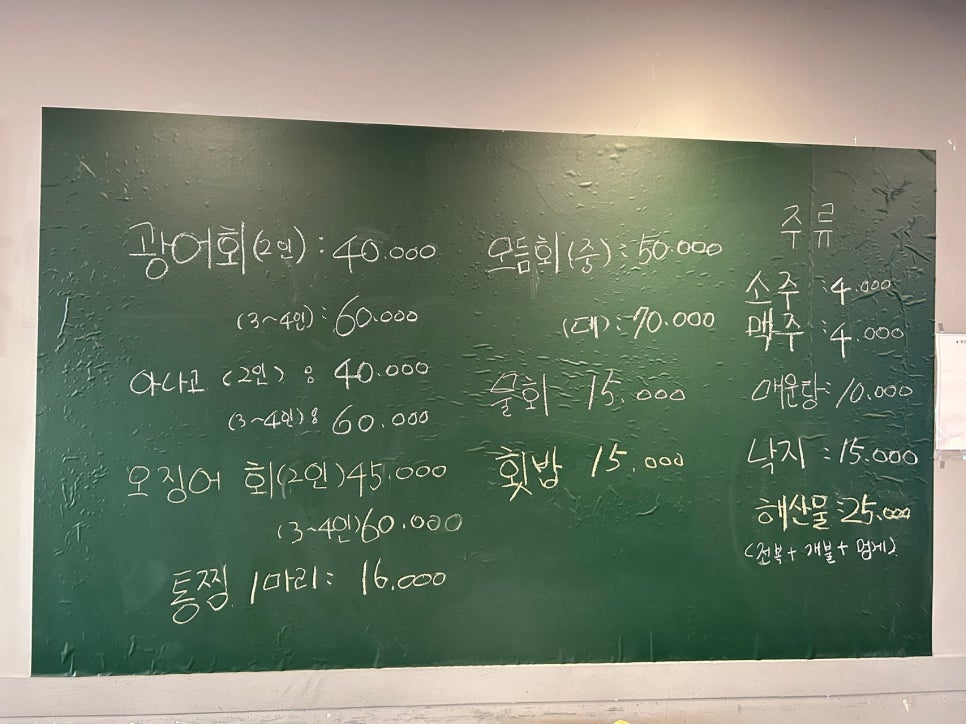 광어회(2인) : 40.000
(3~4인) : 60.000
아나고 (2인) : 40.000
(3~4인) : 60.000
오징어 회(2인) 45.000
(3~4인) 60.000
통찜 1마리 : 16.000
모듬회(중) : 50.000
(대) : 70.000
물회 15.000
횟밥 15.000
주류
소주 : 4.000
맥주 : 4.000
매운탕 : 10.000
낙지 : 15.000
해산물 : 25.000
(전복 + 개불 + 멍게)